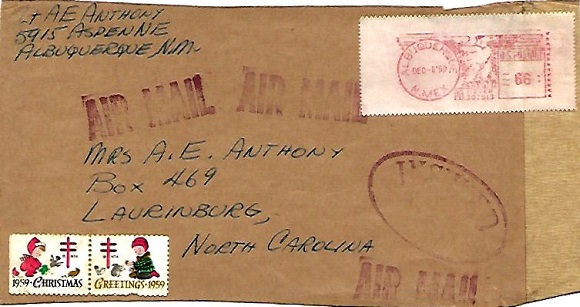 A E ANTHONY
5915 ASPEN NE
ALBUQUERQUE, N.M.
ALBUQUERQUE
DEC
N.MEX.
AIR MAIL
AIR MAIL
MRS A. E. ANTHONY
BOX 469
LAURINBURG,
NORTH CAROLINA
1959·CHRISTMAS
GREETINGS·1959
AIR MAIL